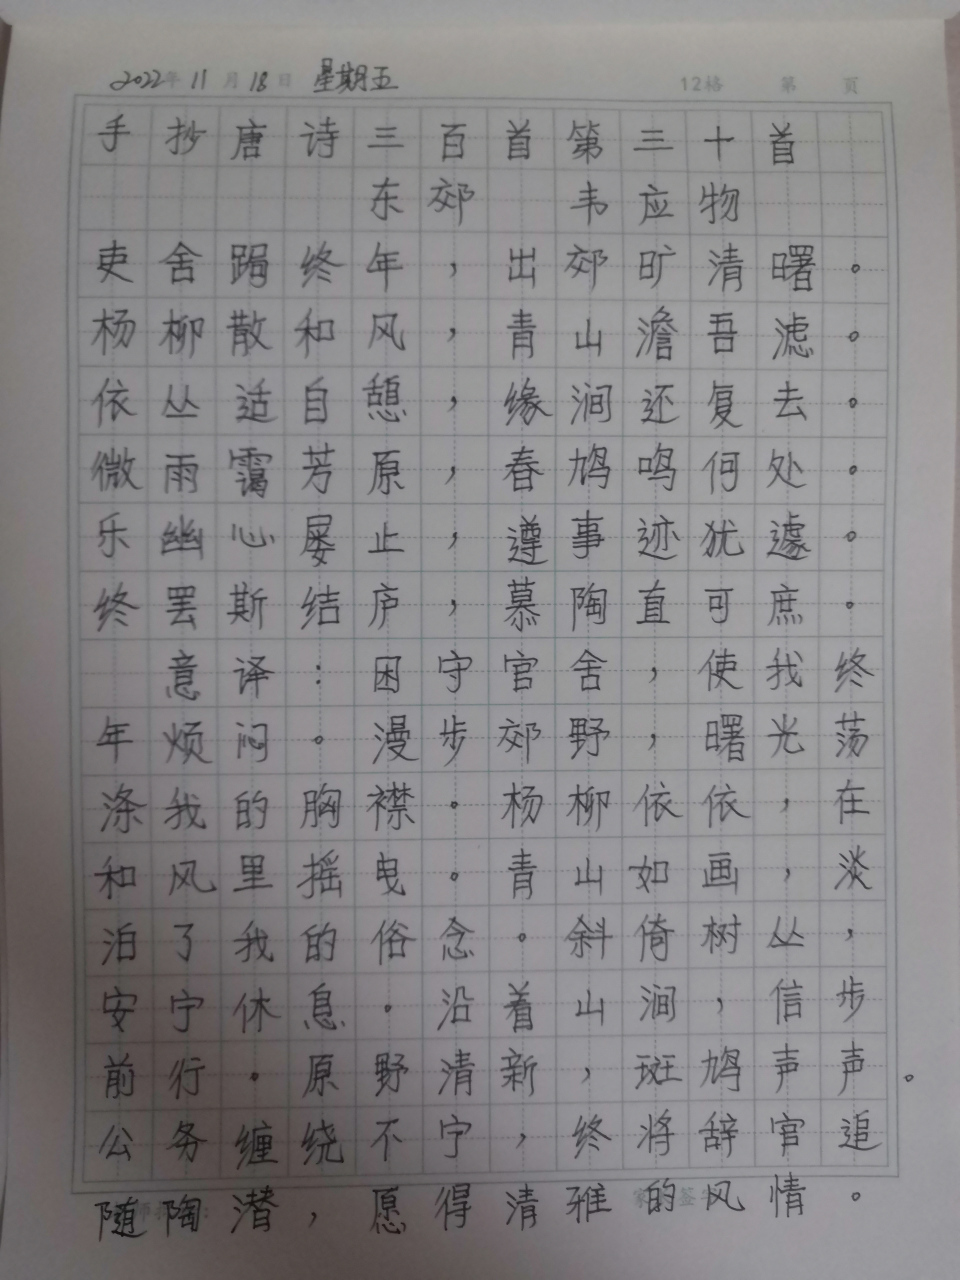 2022年 11月 18日 星期五 12格 第 页
手抄唐诗三百首第三十首
东郊 韦应物
吏舍跼终年，出郊旷清曙。
杨柳散和风，青山澹吾滤。
依丛适自憩，缘涧还复去。
微雨霭芳原，春鸠鸣何处。
乐幽心屡止，遵事迹犹遽。
终罢斯结庐，慕陶直可庶。
意译：困守官舍，使我终
年烦闷。漫步郊野，曙光荡
涤我的胸襟。杨柳依依，在
和风里摇曳。青山如画，淡
泊了我的俗念。斜倚树丛，
安宁休息。沿着山涧，信步
前行。原野清新，斑鸠声声。
公务缠绕不宁，终将辞官追
随陶潜，愿得清雅的风情。